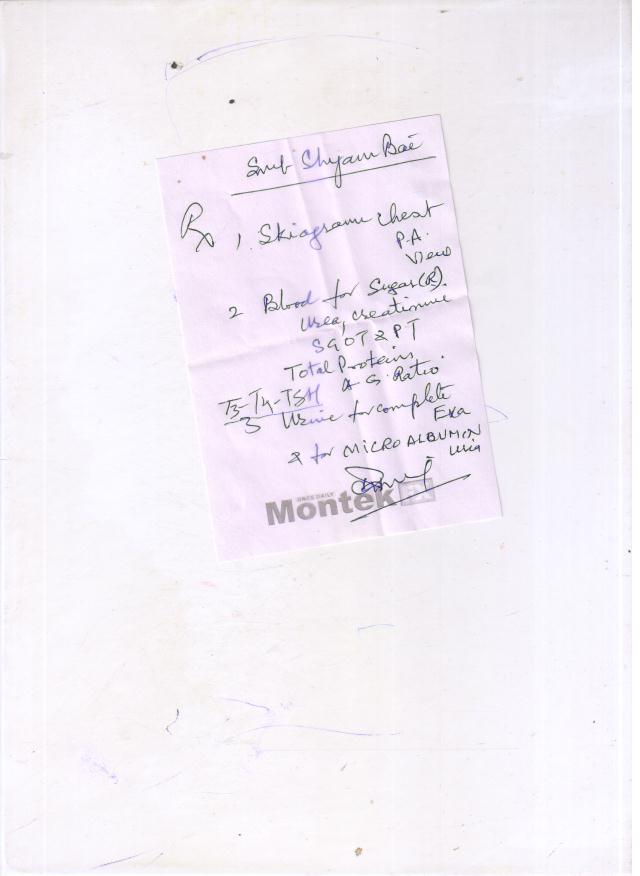 Smt Shyam Bai
Rx 1. Skiagram chest
P.A.
View
2 Blood for Sugar (R).
Urea, creatinine
SGOT & PT
Total Proteins
A G. Ratio.
T3-T4-TSH
3 Urine for complete
Exa
& for MICROALBUMIN
uria
ONCE DAILY
Montek FX